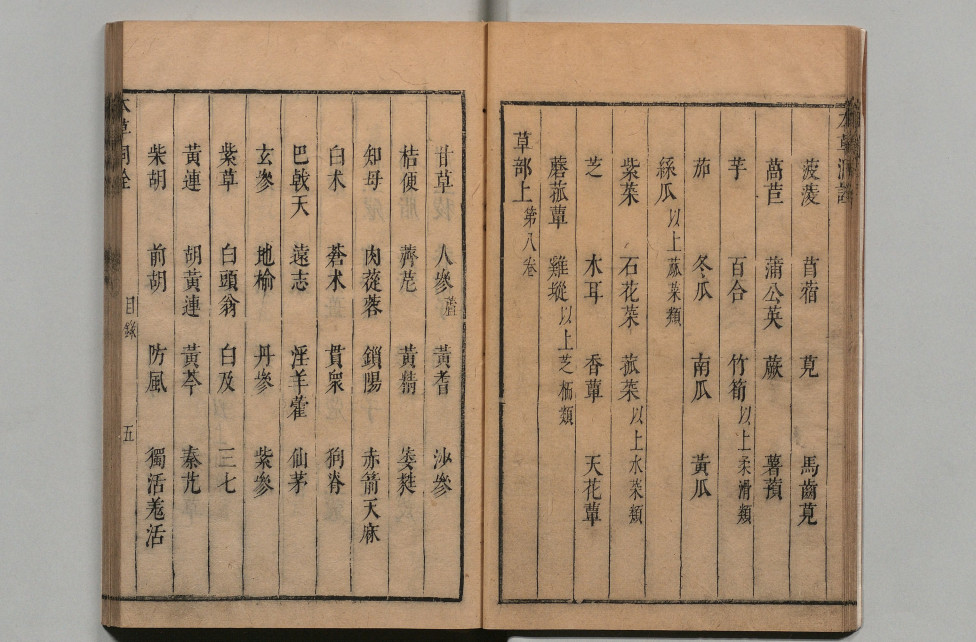 菠薐 苜蓿 莧 馬齒莧
萵苣 蒲公英 蕨 薯蕷
芋 百合 竹筍以上柔滑類
茄 冬瓜 南瓜 黃瓜
絲瓜以上蓏菜類
紫菜 石花菜 菰菜以上水菜類
芝 木耳 香蕈 天花蕈
蘑菰蕈 雞㙡以上芝栭類
草部上第八卷
甘草 人參蘆 黃耆 沙參
桔便 薺苨 黃精 萎蕤
知母 肉蓯蓉 鎖陽 赤箭天麻
白术 蒼术 貫衆 狗脊
巴戟天 遠志 淫羊藿 仙茅
玄參 地榆 丹參 紫參
紫草 白頭翁 白及 三七
黃連 胡黃連 黃芩 秦艽
柴胡 前胡 防風 獨活羗活
目錄 五